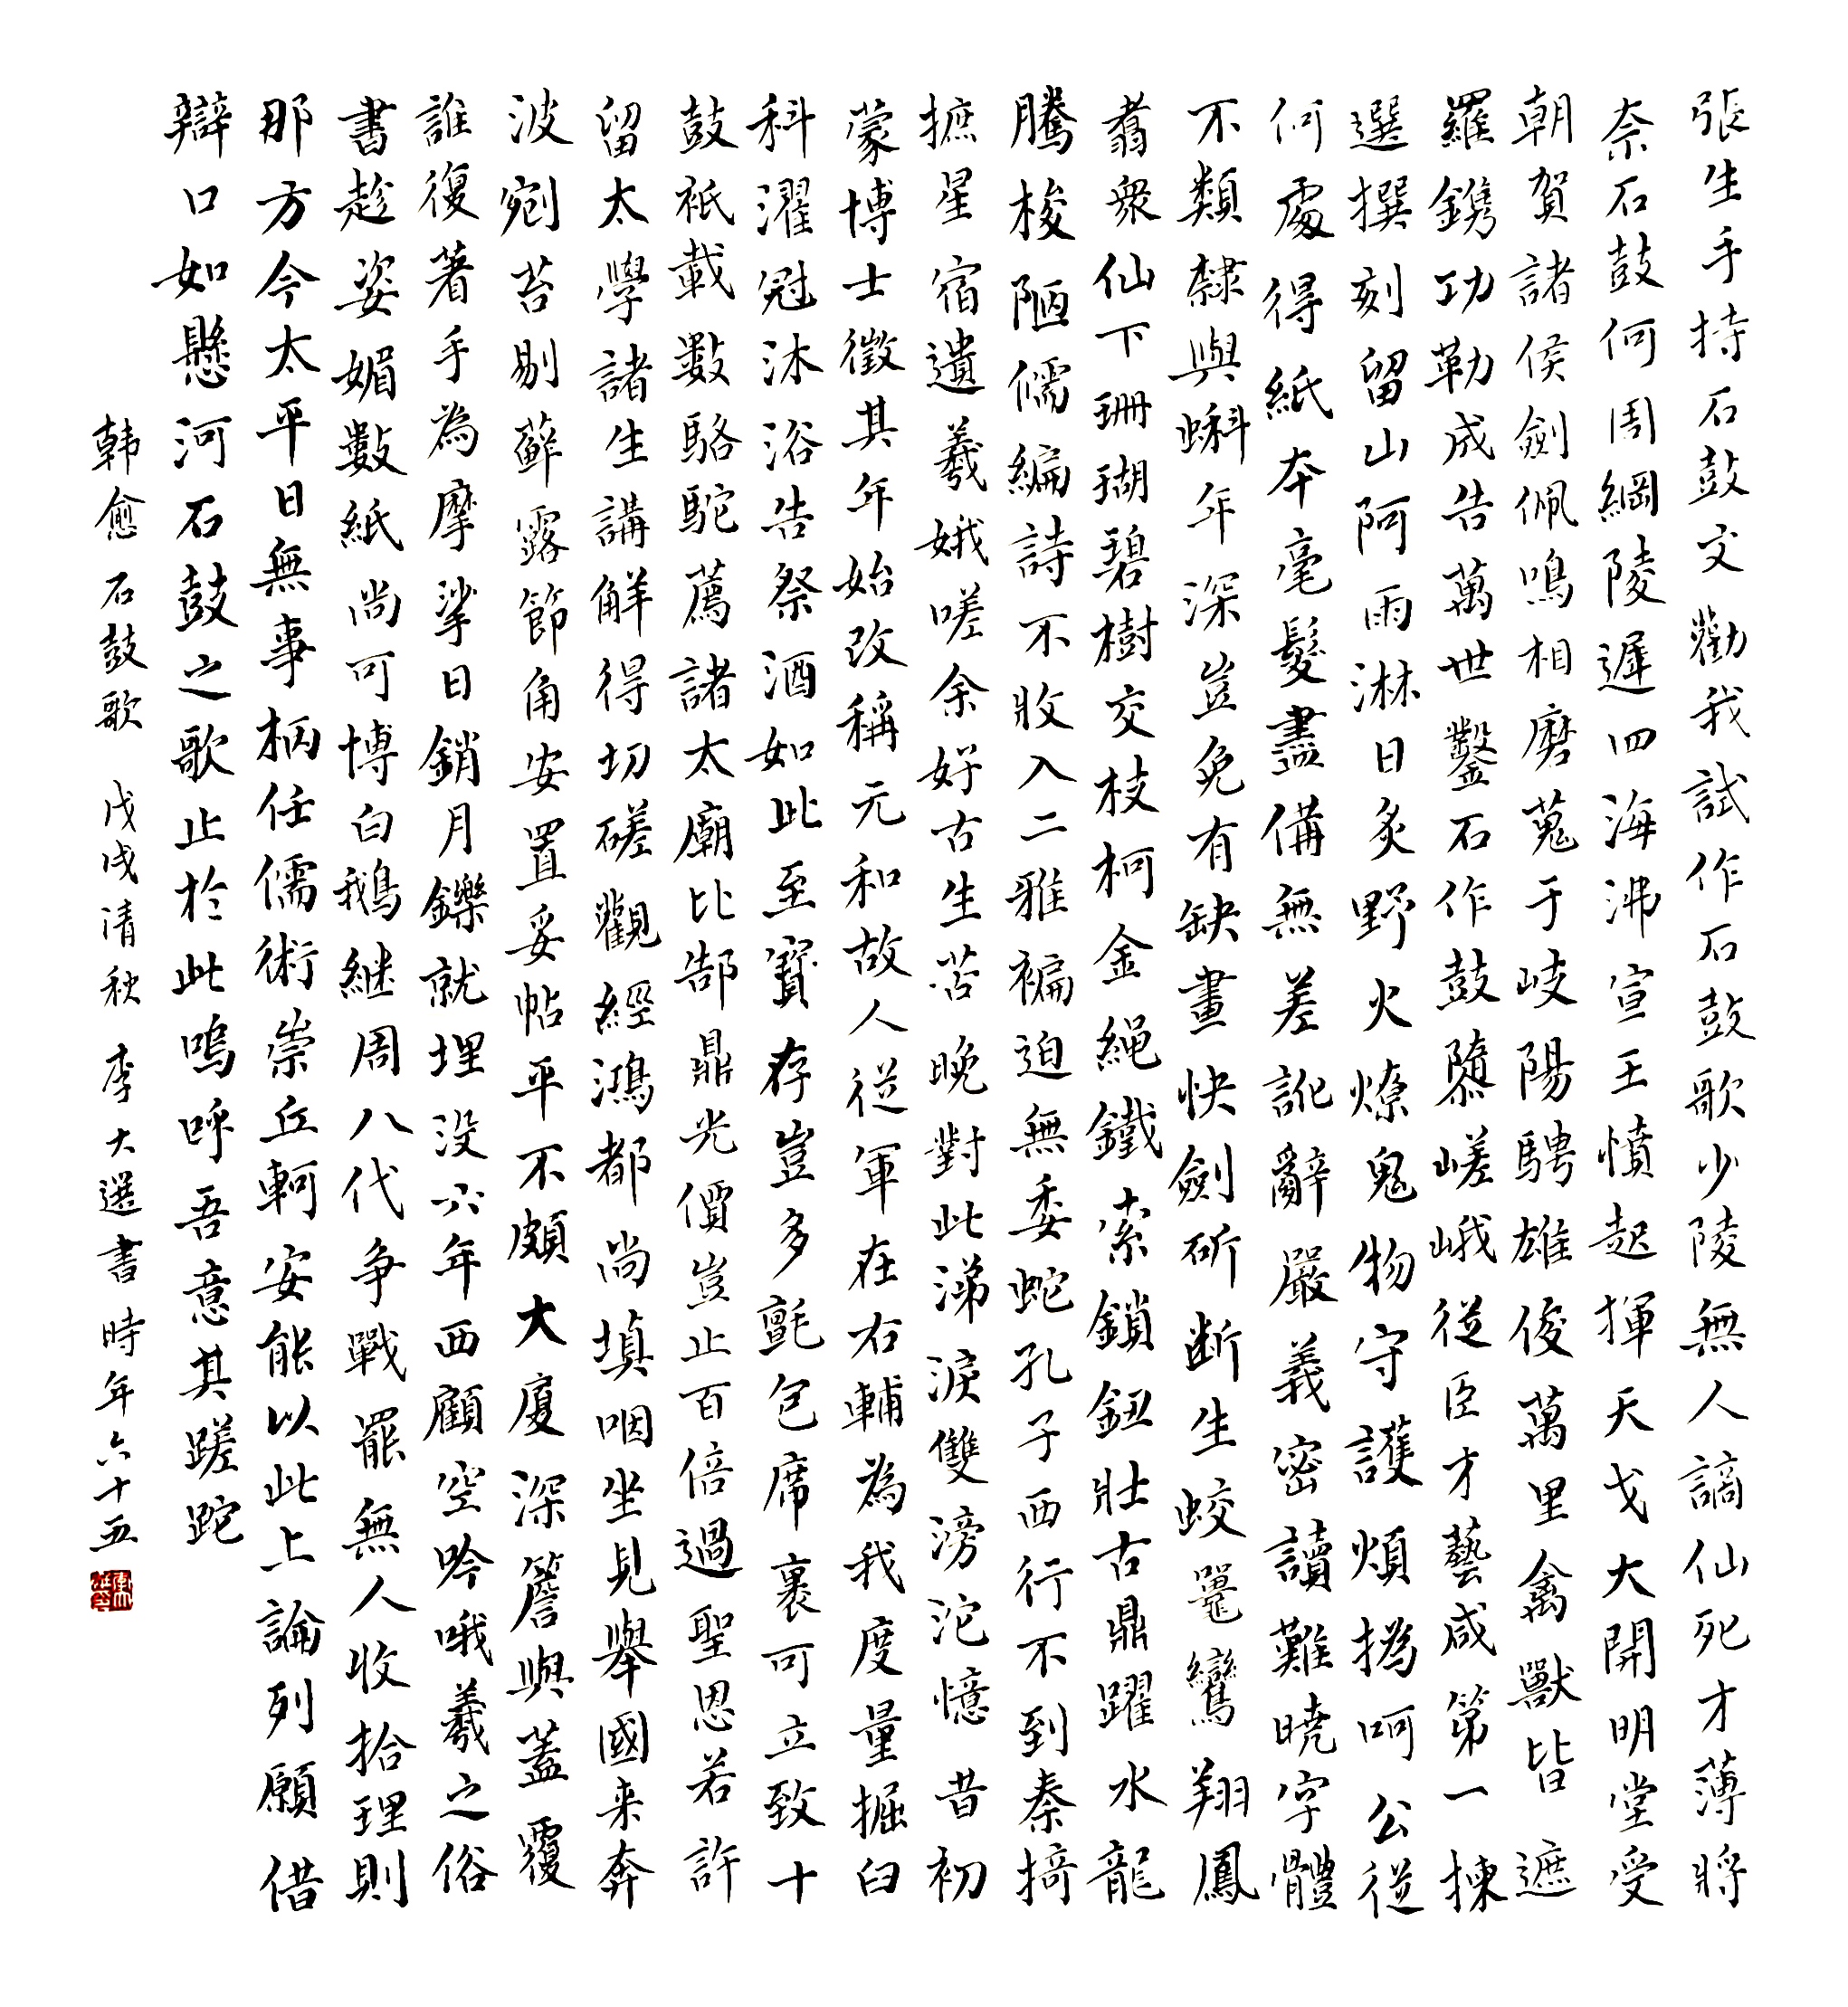 張生手持石鼓文勸我試作石鼓歌少陵無人謫仙死才薄將
奈石鼓何周綱陵遲四海沸宣王憤起揮天戈大開明堂受
朝賀諸侯劍佩鳴相磨蒐于岐陽騁雄俊萬里禽獸皆遮
羅鐫功勒成告萬世鑿石作鼓隳嵯峨從臣才藝咸第一揀
選撰刻留山阿雨淋日炙野火燎鬼物守護煩撝呵公從
何處得紙本毫髮盡備無差訛辭嚴義密讀難曉字體
不類隸與蝌年深豈免有缺畫快劍斫断生蛟鼉鸞翔鳳
翥眾仙下珊瑚碧樹交枝柯金繩鐵索鎖鈕壯古鼎躍水龍
騰梭陋儒編詩不收入二雅褊迫無委蛇孔子西行不到秦掎
摭星宿遺羲娥嗟余好古生苦晚對此涕淚雙滂沱憶昔初
蒙博士徵其年始改稱元和故人從軍在右輔為我度量掘臼
科濯冠沐浴告祭酒如此至寶存豈多氈包席裹可立致十
鼓祇載數駱駝薦諸太廟比郜鼎光價豈止百倍過聖恩若許
留太學諸生講解得切磋觀經鴻都尚填咽坐見舉國来奔
波剜苔剔蘚露節角安置妥帖平不頗大廈深簷與蓋覆
誰復著手為摩挲日銷月鑠就埋没六年西顧空吟哦羲之俗
書趁姿媚數紙尚可博白鵝継周八代争戰罷無人收拾理則
那方今太平日無事柄任儒術崇丘軻安能以此上論列願借
辯口如懸河石鼓之歌止於此嗚呼吾意其蹉跎
韩愈石鼓歌 戊戌清秋 李大選書時年六十五